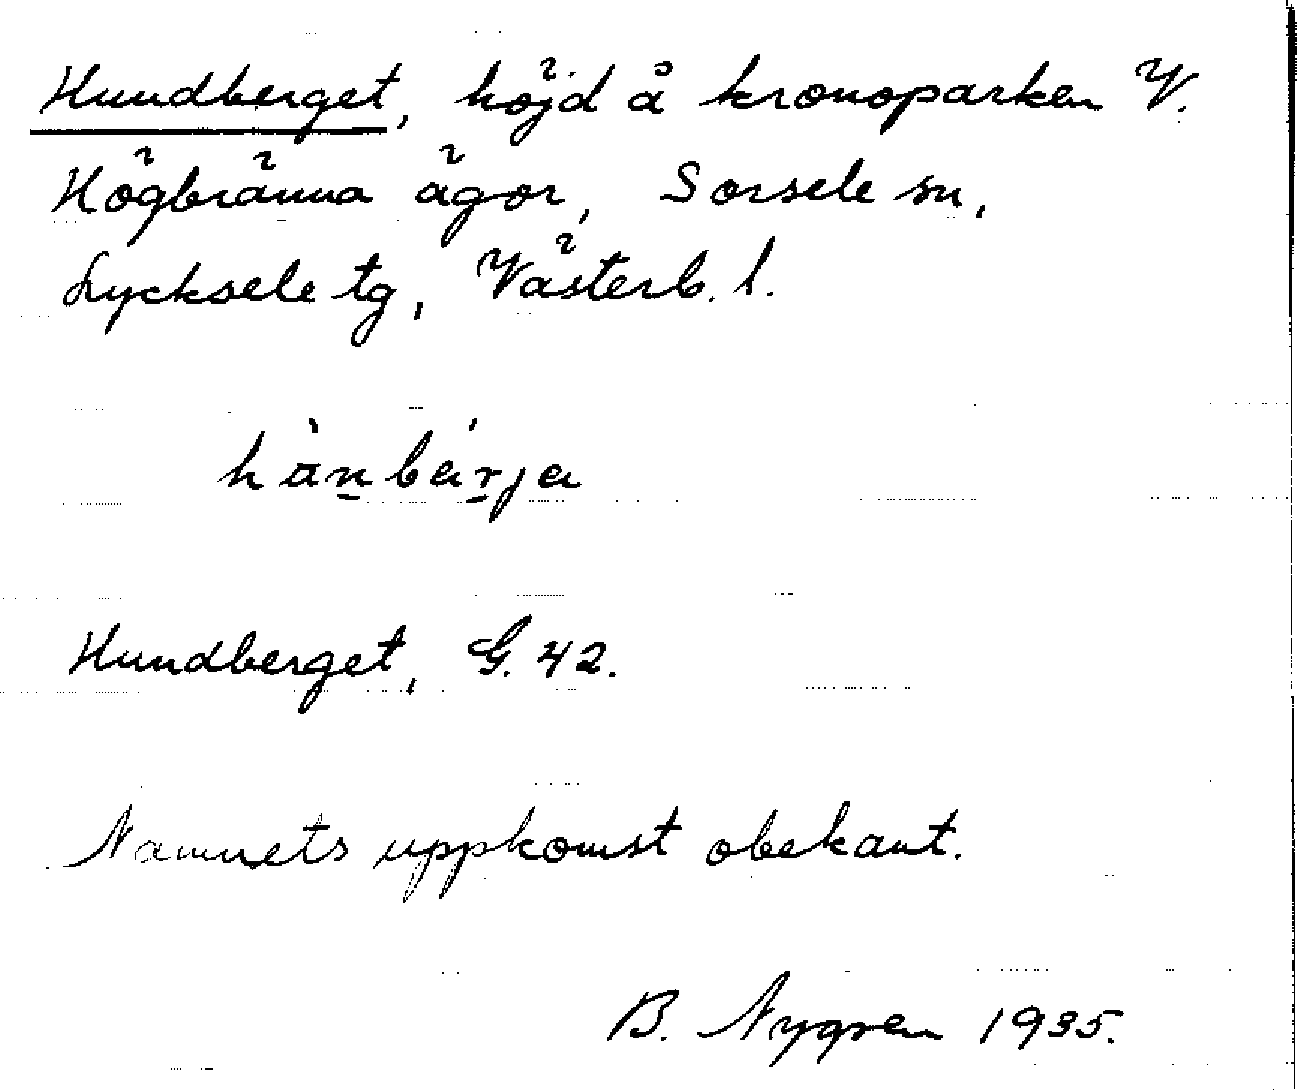 Hundberget, höjd å kronoparken V.
Högbränna ägor, Sorsele sn,
Lycksele tg, Västerb. l.
hàn̲bár̲ja
Hundberget, G. 42.
Namnets uppkomst obekant.
B. Nygren 1935.